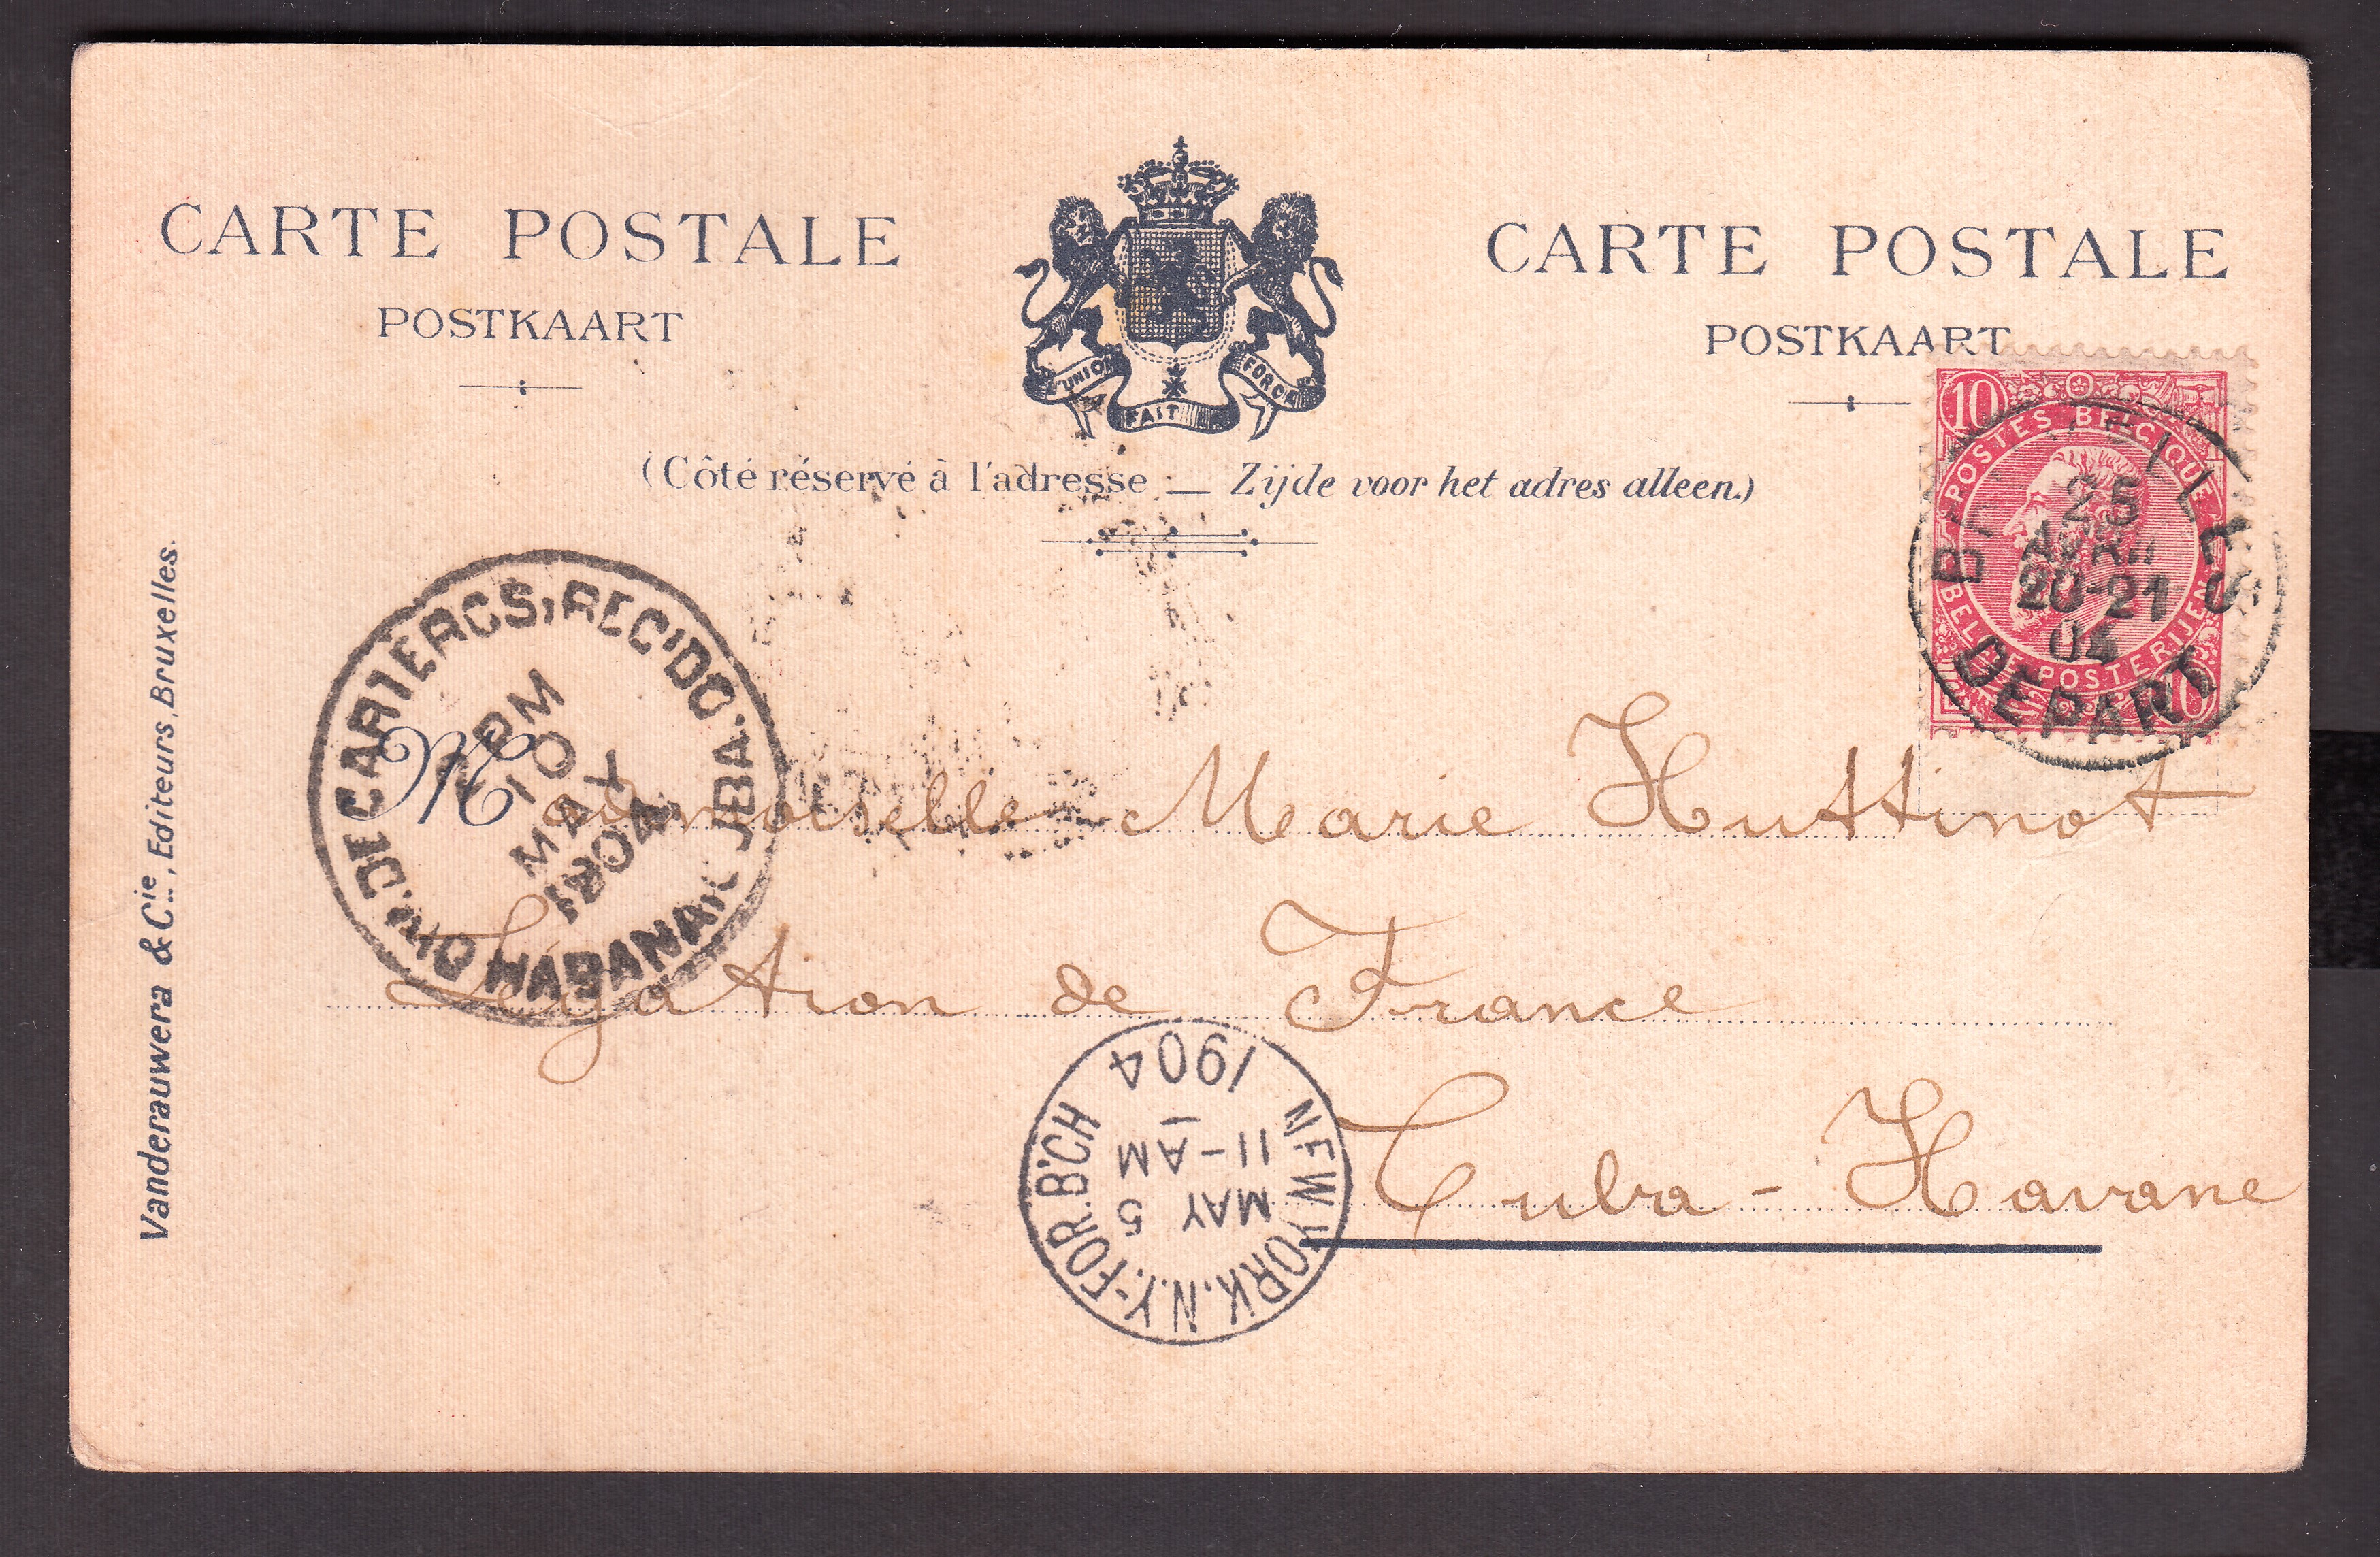 CARTE POSTALE
POSTKAART
L'UNION FAIT FORCE
CARTE POSTALE
POSTKAART
(Côté réservé à l'adresse — Zijde voor het adres alleen.)
10
POSTES BELGIQUE
BELGIE POSTERIJEN
10
25
AVRIL
20-21
04
DEPART
DE CARTEROS, RECIDO.
PM
10
MAY
1904
HABANA
Mademoiselle Marie Huttinot
Légation de France
Cuba - Havane
NEW YORK. N.Y. FOR. B'CH
MAY 5
11-AM
1904
Vanderauwera & Cie., Editeurs, Bruxelles.